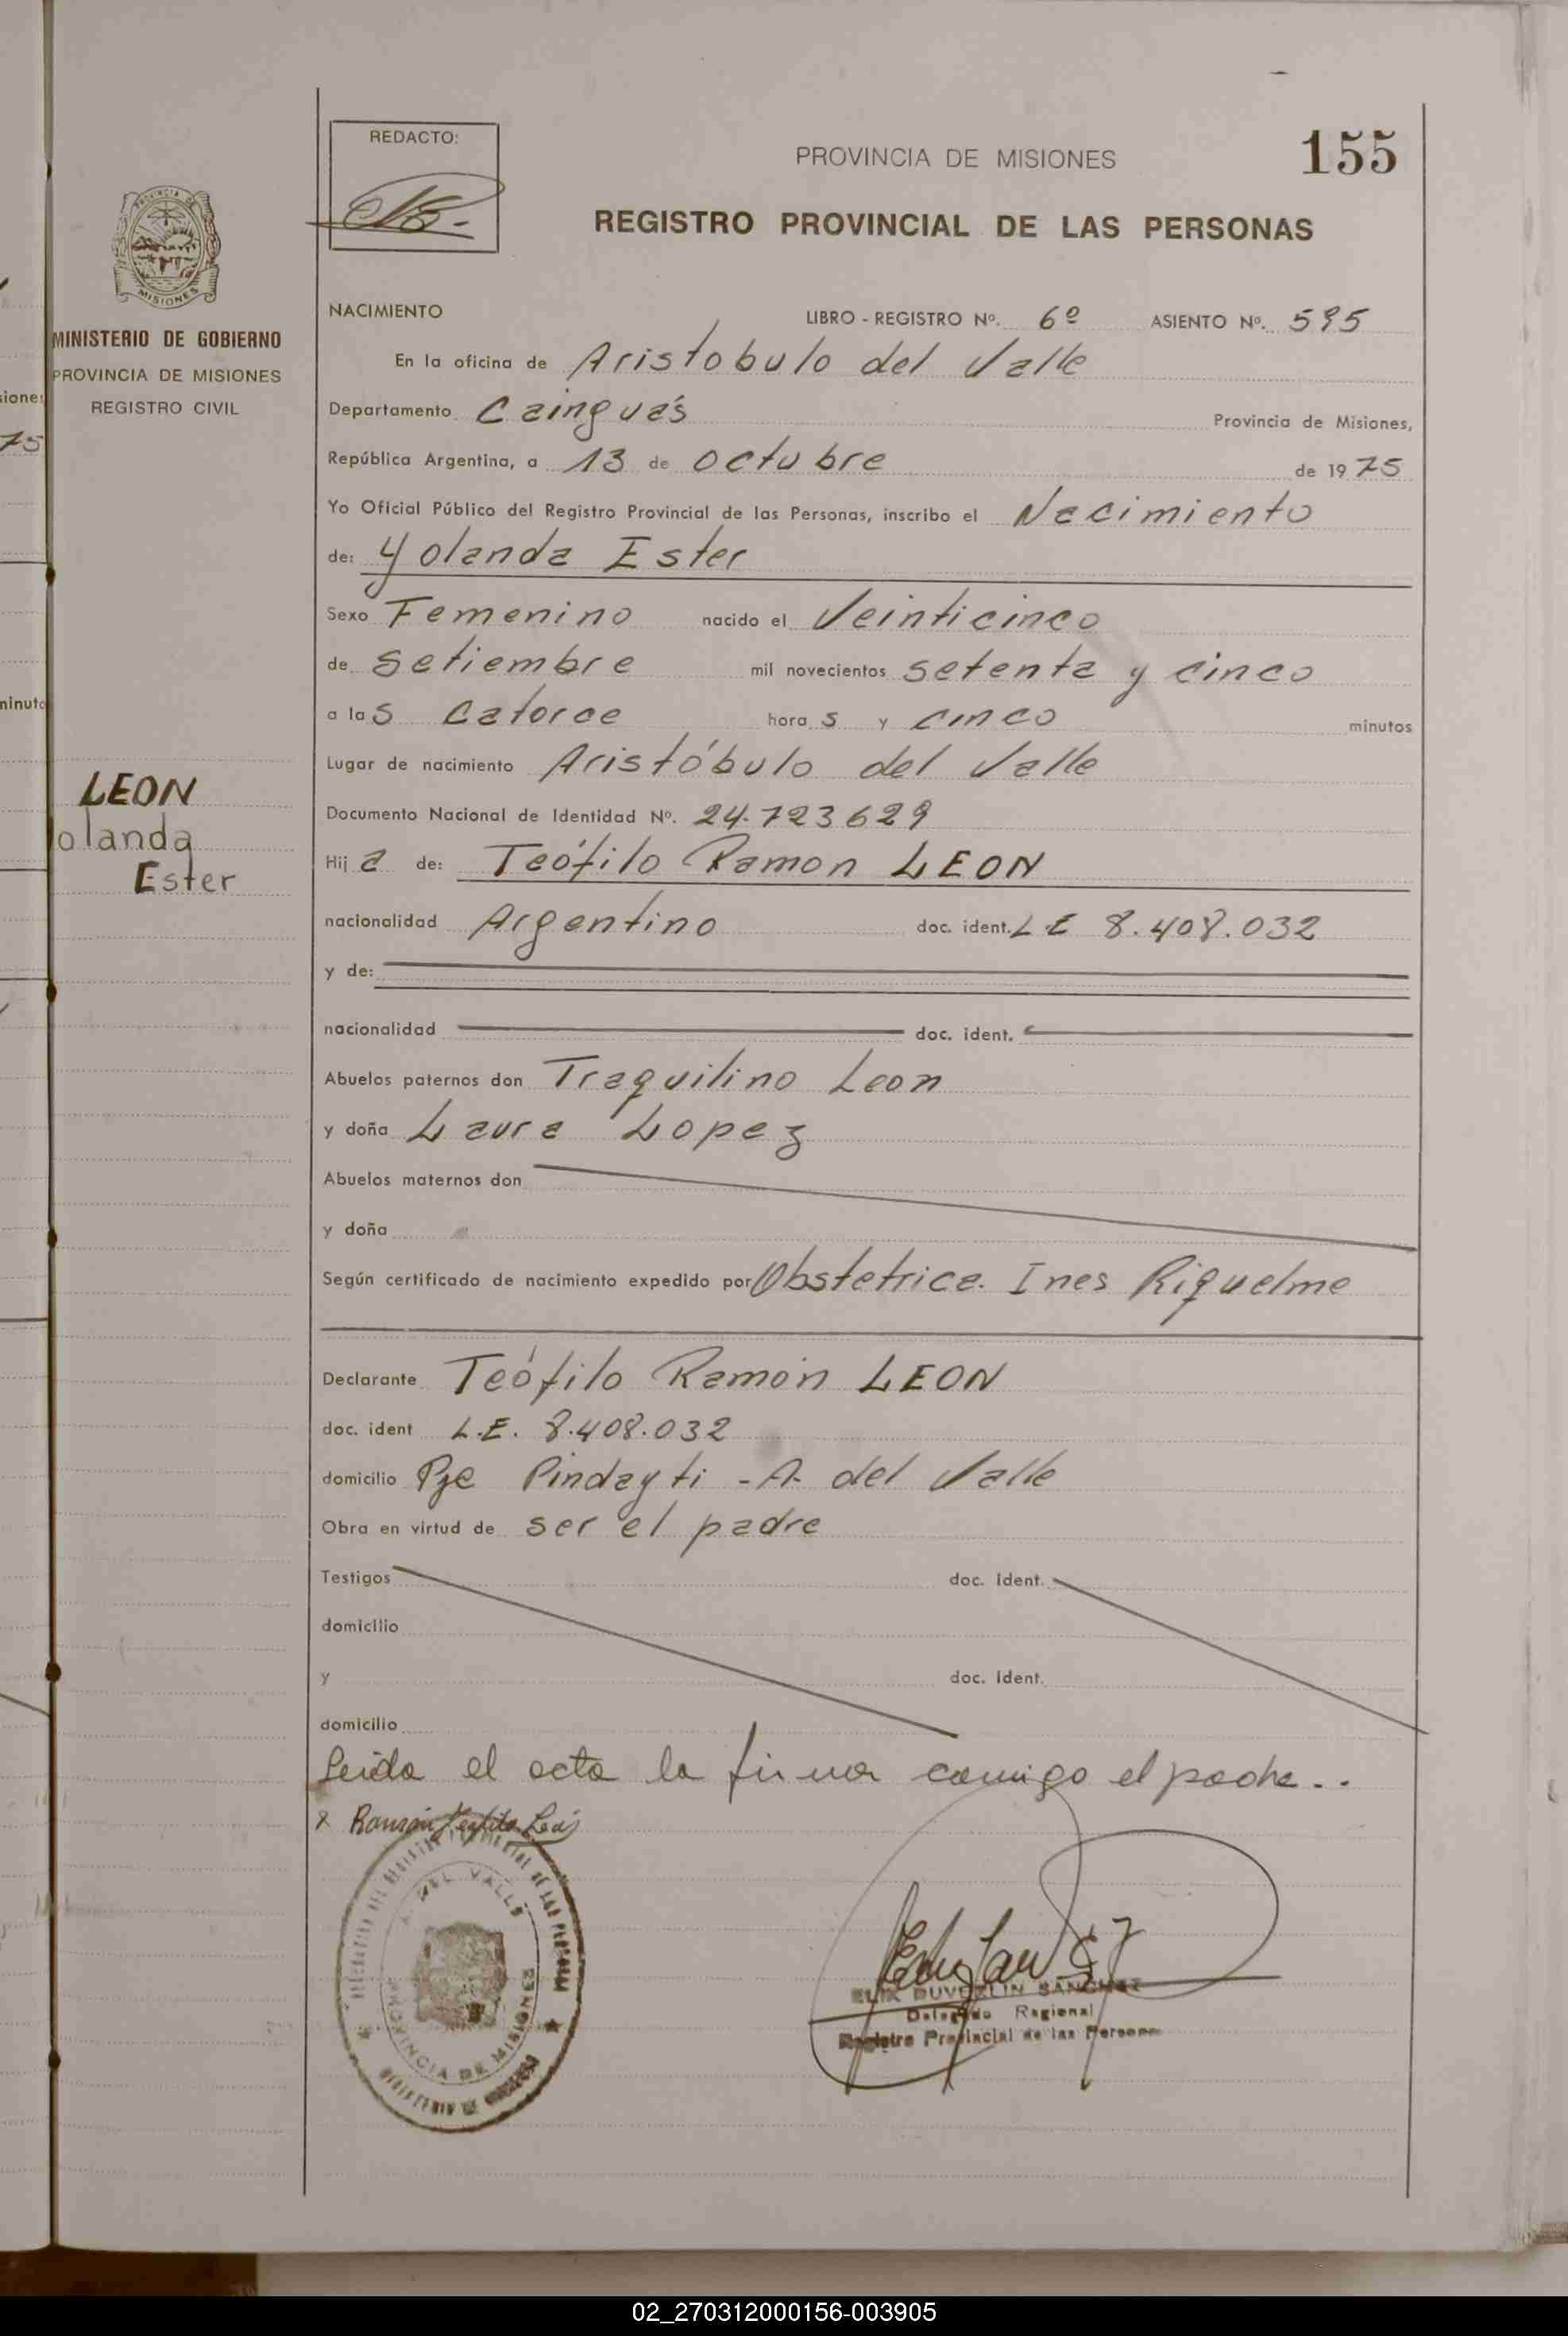 REDACTO:
PROVINCIA DE MISIONES
155
REGISTRO PROVINCIAL DE LAS PERSONAS
PROVINCIA DE
MISIONES
MINISTERIO DE GOBIERNO
PROVINCIA DE MISIONES
REGISTRO CIVIL
NACIMIENTO LIBRO - REGISTRO Nº. 6º ASIENTO Nº. 595
En la oficina de Aristobulo del Valle
Departamento Cainguás Provincia de Misiones,
República Argentina, a 13 de octubre de 1975
Yo Oficial Público del Registro Provincial de las Personas, inscribo el Nacimiento
de: Yolanda Ester
Sexo Femenino nacido el Veinticinco
de setiembre mil novecientos setenta y cinco
a las catorce horas y cinco minutos
Lugar de nacimiento Aristóbulo del Valle
Documento Nacional de Identidad Nº. 24.723629
Hija de: Teófilo Ramon LEON
nacionalidad Argentino doc. ident. LE 8.408.032
y de:
nacionalidad doc. ident.
Abuelos paternos don Traquilino Leon
y doña Laura Lopez
Abuelos maternos don
y doña
Según certificado de nacimiento expedido por Obstetrica. Ines Riquelme
Declarante Teófilo Ramón LEON
doc. ident L.E. 8.408.032
domicilio Pje Pindayti - A. del Valle
Obra en virtud de ser el padre
Testigos doc. ident.
domicilio
y doc. ident.
domicilio
Leida el acta la firma conmigo el padre..
x Ramón Teofilo León
LEON
olanda
Ester
siones
75
minuto
A. DEL VALLE
PROVINCIA DE MISIONES
SANCHEZ
Delegado Regional
Registro Provincial de las Personas
02_270312000156-003905